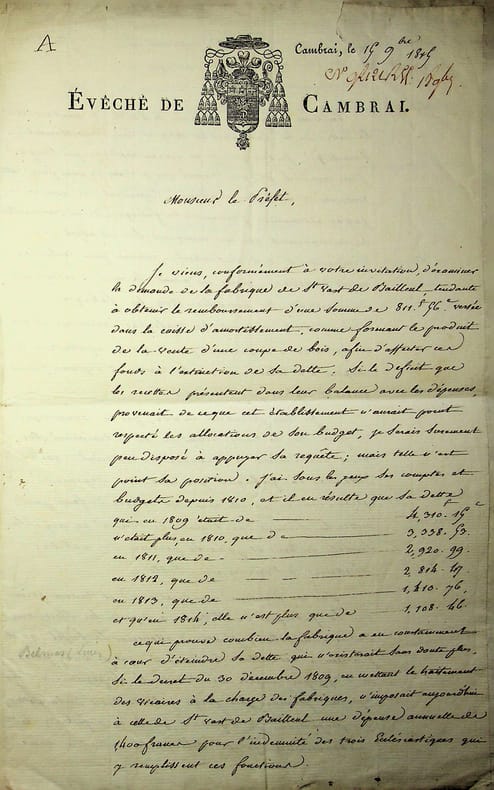 A
Cambrai, le 15 9bre 1815
Évêché de Cambrai.
Monsieur le Préfet,
Je viens, conformément à votre invitation, d'examiner
la demande de la fabrique de St Vast de Bailleul, tendante
à obtenir le remboursement d'une somme de 811.f 56.c versée
dans la caisse d'amortissement, comme formant le produit
de la vente d'une coupe de bois, afin d'affecter ces
fonds à l'extinction de sa dette. Si le deficit que
les recettes présentent dans leur balance avec les dépenses,
provenait de ce que cet établissement n'aurait point
respecté les allocations de son budget, je serais surement
peu disposé à appuyer sa requête; mais telle n'est
point sa position. J'ai sous les yeux ses comptes et
budgets depuis 1810, et il en résulte que sa dette
qui en 1809 était de 4,310.f 15c
n'était plus, en 1810, que de 3,338. 53.
en 1811, que de 2,920. 99.
en 1812, que de 2,814.
en 1813, que de 1,410. 76,
et qu'en 1814, elle n'est plus que de 1,108. 46.
ce qui prouve combien la fabrique a eu constamment
à cœur d'éteindre sa dette qui n'existerait sans doute plus,
si le décret du 30 décembre 1809, en mettant le traitement
des vicaires à la charge des fabriques, n'imposait aujourd'hui
à celle de St Vast de Bailleul une dépense annuelle de
1400 francs pour l'indemnité des trois Ecclésiastiques qui
y remplissent ces fonctions.
Belmas (Louis)